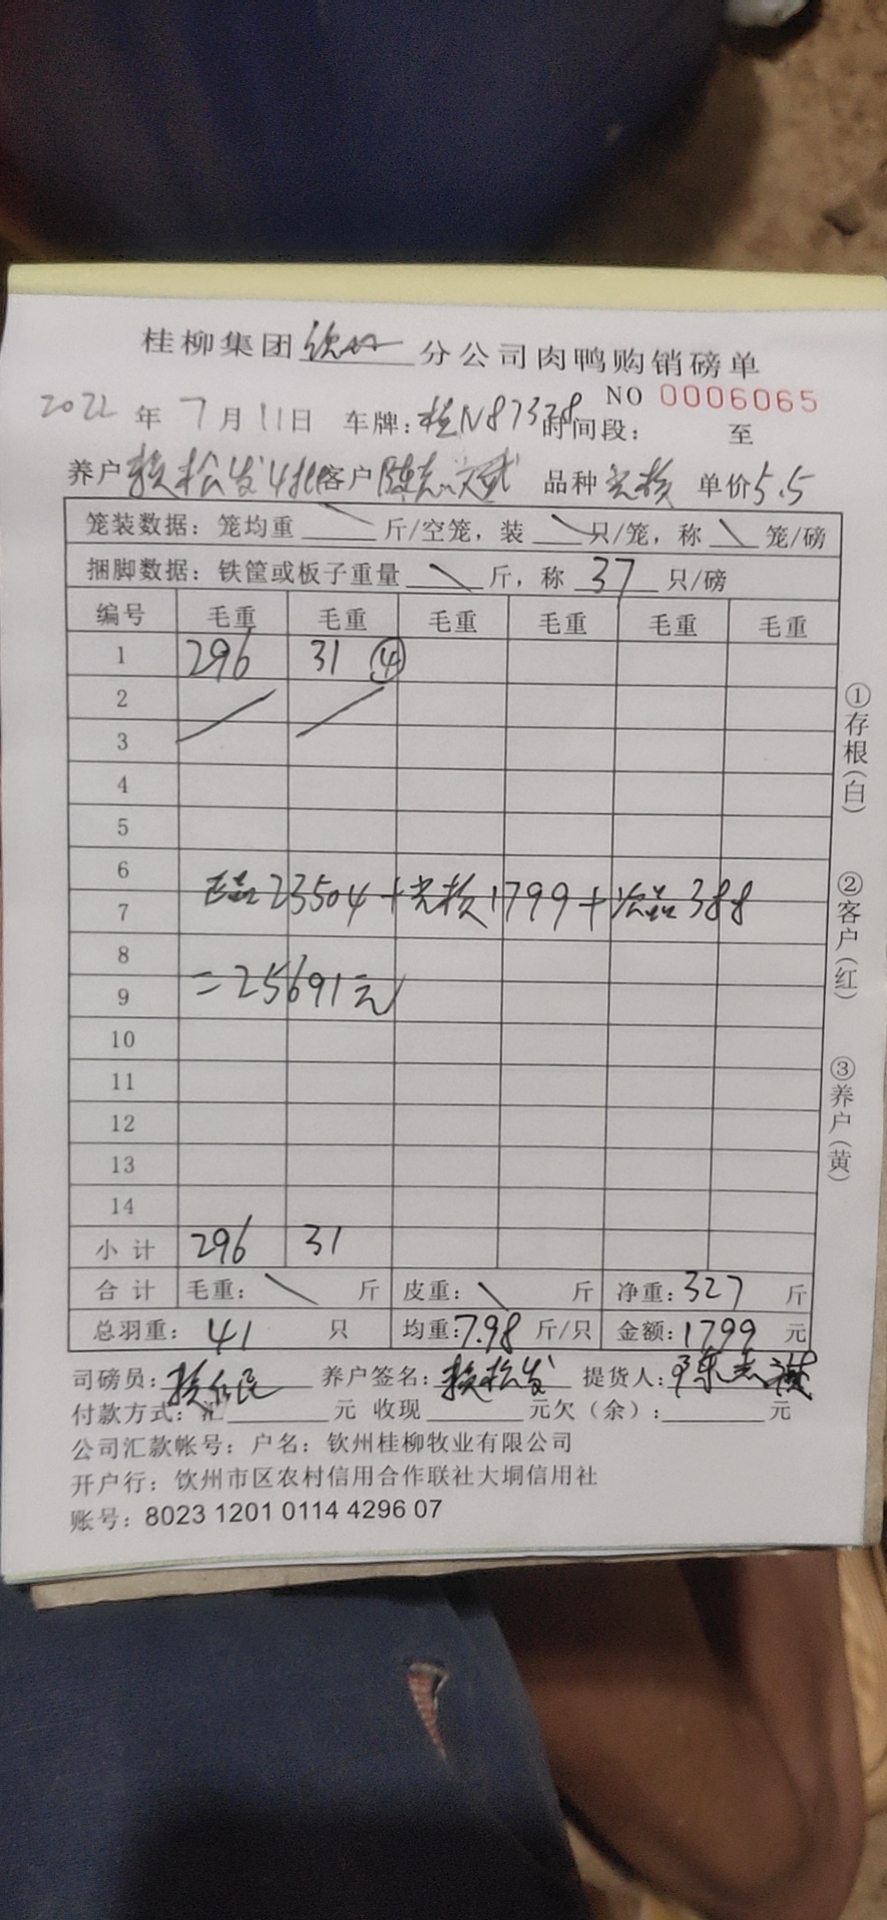 桂柳集团钦州分公司肉鸭购销磅单
NO 0006065
2022年7月11日 车牌:桂N87328 时间段: 至
养户 松发4批 客户 陈志斌 品种 光核 单价5.5
笼装数据: 笼均重 \ 斤/空笼, 装 \ 只/笼, 称 \ 笼/磅
捆脚数据: 铁筐或板子重量 \ 斤, 称 37 只/磅
编号 毛重 毛重 毛重 毛重 毛重 毛重
1 296 31 ④
2
3
4
5
6
正品23504+光核1799+次品388
7
8
=25691元
9
10
11
12
13
14
小计 296 31
合计 毛重: \ 斤 皮重: \ 斤 净重:327 斤
总羽重: 41 只 均重:7.98 斤/只 金额:1799 元
司磅员: 养户签名: 松发 提货人:陈志斌
付款方式: 汇 元 收现 元欠(余): 元
公司汇款帐号: 户名: 钦州桂柳牧业有限公司
开户行: 饮州市区农村信用合作联社大垌信用社
账号: 8023 1201 0114 4296 07
①存根(白)
②客户(红)
③养户(黄)